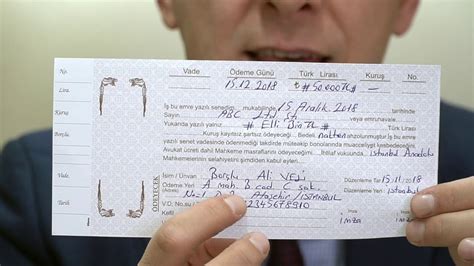 No.
Lira
Kuruş
Borçlu
Vade:
Vade
Ödeme Günü
Türk Lirası
Kuruş
No.
15.12.2018
₺ #50.000TL#
—
İş bu emre yazılı senedim mukabilinde 15 Aralık 2018 tarihinde
Sayın ABC Ltd. Şti. veya emruhavale
Yukarıda yazılı yalnız # Elli Bin TL # Türk Lirası
Kuruş kayıtsız şartsız ödeyeceğim. Bedeli nakten
yazılı senet vadesinde ödenmediği takdirde müteakip bonolarında muacceliyet
Avukat ücreti dahil Mahkeme masraflarını ödeyeceğim. İhtilaf vukuunda, istanbul Anadolu
Mahkemelerinin selahiyetini şimdiden kabul eylerim.
ÖDEYECEK
İsim / Unvan Borçlu Ali VELİ
Ödeme Yeri A mah. B cad. C sok.
Ataşehir/İSTANBUL
V.D. No. 12345678910
Kefil
Düzenleme Tar. 15.11.2018
Düzenleme Yeri istanbul
imza
imza